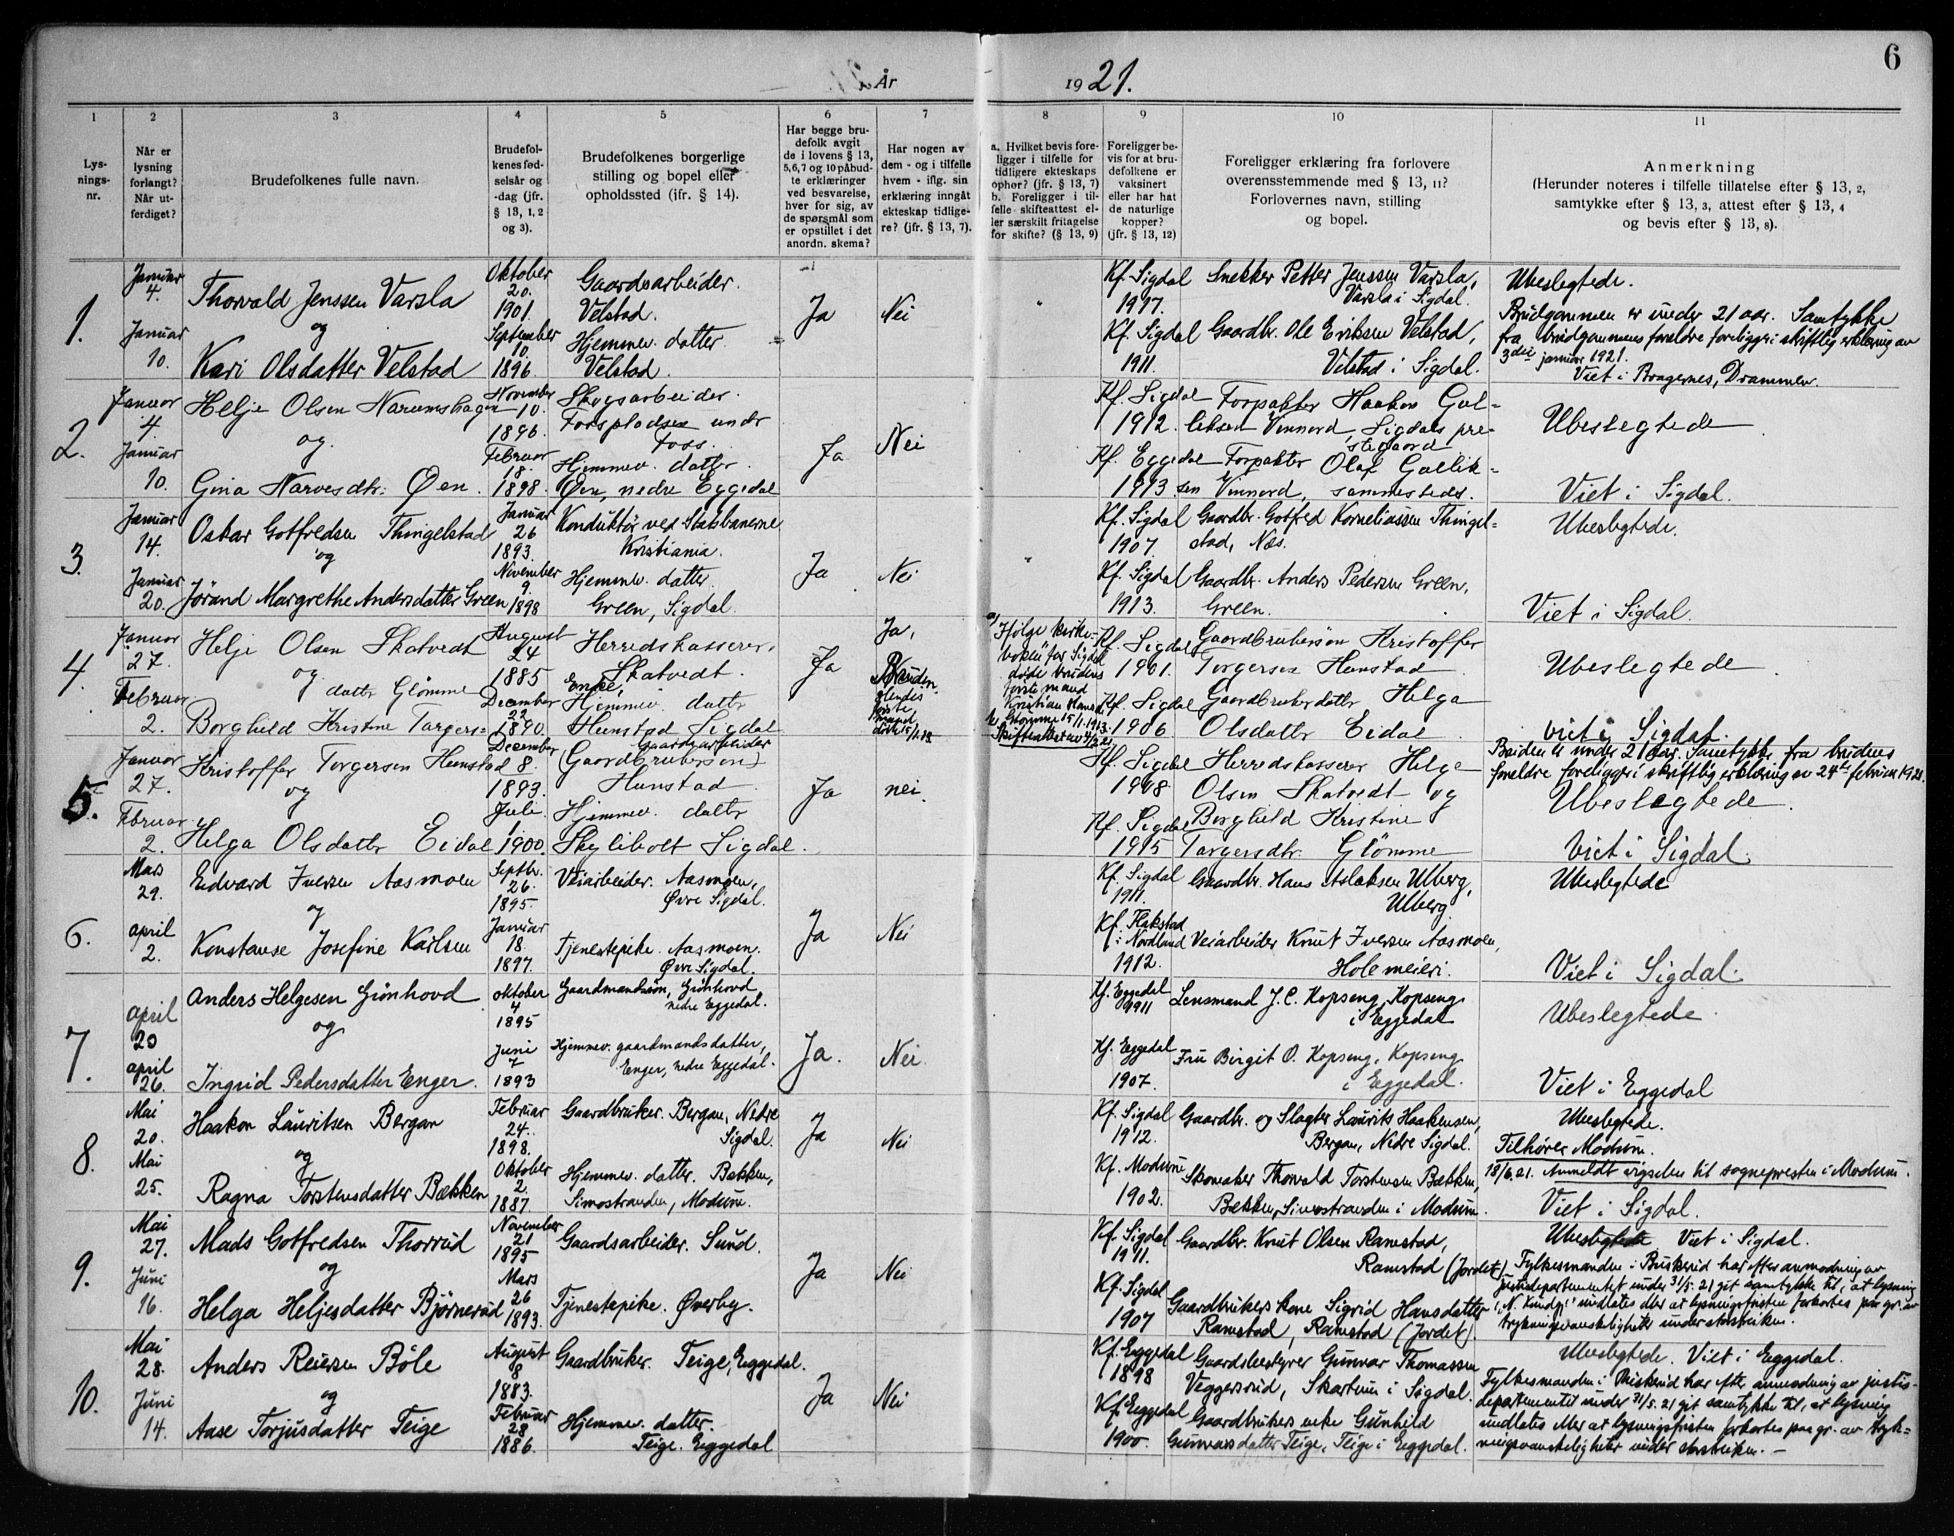 6
År 1921.
1
Lysningsnr.
2
Når er
lysning
forlangt?
Når utferdiget?
3
Brudefolkenes fulle navn.
4
Brudefolkenes fødselsår og
-dag (jfr.
§ 13, 1, 2
og 3).
5
Brudefolkenes borgerlige
stilling og bopel eller
opholdssted (ifr. § 14).
6
Har begge brudefolk avgit
de i lovens § 13,
5,6,7 og 10 påbudte erklæringer
ved besvarelse,
hver for sig, av
de spørsmål som
er opstillet i det
anordn. skema?
7
Har nogen av
dem - og i tilfelle
hvem - iflg. sin
erklæring inngått
ekteskap tidligere? (jfr. § 13, 7).
8
a. Hvilket bevis foreligger i tilfelle for
tidligere ekteskaps
ophør? (jfr. § 13, 7)
b. Foreligger i tilfelle skifteattest eller særskilt fritagelse
for skifte? (§ 13, 9)
9
Foreligger bevis for at brudefolkene er
vaksinert
eller har hat
de naturlige
kopper?
(jfr. § 13, 12)
10
Foreligger erklæring fra forlovere
overensstemmende med § 13, 11?
Forlovernes navn, stilling
og bopel.
11
Anmerkning
(Herunder noteres i tilfelle tillatelse efter § 13, 2,
samtykke efter § 13, 3, attest efter § 13, 4
og bevis efter § 13, 8).
1.
Januar
4.
Januar
10.
Thorvald Jenssen Varsla
og
Kari Olsdatter Velstad
Oktober
20.
1901.
September
10.
1896.
Gaardsarbeider.
Velstad.
Hjemmev. datter.
Velstad.
Ja
Nei
Kf. Sigdal
1917.
Kf. Sigdal
1911.
Snekker Petter Jenssen Varsla,
Varsla i Sigdal.
Gaardbr. Ole Eriksen Velstad,
Velstad i Sigdal.
Ubeslegtede.
Brudgommen er under 21 aar. Samtykke
fra brudgommens foreldre foreligger i skriftlig erklæring av
3die januar 1921.
Viet i Bragernes, Drammen.
2.
Januar
4
Januar
10.
Helje Olsen Narumshagen
og
Gina Narvesdtr. Øen.
November
10.
1896.
Februar
18.
1898.
Skogsarbeider.
Fosspladsen undr
Foss.
Hjemmev. datter.
Øen, nedre Eggedal
Ja
Nei
Kf. Sigdal
1912.
Kf. Eggedal
1913
Forpakter Haakon Gulliksen Vinnord, Sigdals prestegaard
Forpakter Olaf Gulliksen Vinnord, sammesteds.
Ubeslegtede
Viet i Sigdal.
3.
Januar
14.
Januar
20.
Oskar Gotfredsen Thingelstad
og
Jørand Margrethe Andersdatter Green
Januar
26
1893.
November
9.
1898
Konduktør ved Statsbanerne
Kristiania.
Hjemmev. datter.
Green, Sigdal.
Ja
Nei
Kf. Sigdal
1907.
Kf. Sigdal
1913.
Gaardbr. Gotfred Korneliussen Thingelstad, Næs.
Gaardbr. Anders Pedersen Green,
Green.
Ubeslegtede.
Viet i Sigdal.
4.
Januar
27.
Februar
2.
Helje Olsen Skatvedt
og
datter Glømme
Borghild Kristine Torgers=
August
24
1885
December
22
1890.
Herredskasserer.
Skatvedt.
Enke,
Hjemmev. datter
Hunstad Sigdal
Ja
Ja,
Bruden.
første
mand
døde 15/1.13.
a) Ifølge kirkeboken for Sigdal
døde brudens
første mand
Kristian Hansen
Glømme 15/1.1913.
b) Skifteattest av 4/2.21
Kf. Sigdal
1901.
Kf. Sigdal
1906
Gaardbrukersøn Kristoffer
Torgersen Hunstad
Gaardbrukerdatter Helga
Olsdatter Eidal
Ubeslegtede
viet i Sigdal.
5.
Januar
27.
Februar
2.
Kristoffer Torgersen Hunstad
og
Helga Olsdatter Eidal
December
8.
1893.
Juli
1.
1900.
Gaardsarbeider
(Gaardbrukersøn)
Hunstad.
Hjemmev. datter
Skylibolt Sigdal.
Ja
nei.
Kf. Sigdal
1908
Kf. Sigdal
1915
Herredskasserer Helge
Olsen Skatvedt og
Borghild Kristine
Torgersdtr. Glømme
Bruden er under 21 aar. Samtykke fra brudens
foreldre foreligger i skriftlig erklæring av 24de februar 1921.
Ubeslegtede.
Viet i Sigdal.
6.
Mars
29.
april
2.
Edvard Iversen Aasmoen
og
Konstanse Josefine Karlsen
Septbr.
26.
1895.
Januar
18.
1897.
Veiarbeider. Aasmoen,
Øvre Sigdal.
Tjenestepike. Aasmoen.
Øvre Sigdal.
Ja
Nei
Kf. Sigdal
1911.
Kf. Flakstad
i Nordland
1912.
Gaardbr. Hans Aslaksen Ulberg,
Ulberg.
Veiarbeider Knut Iversen Aasmoen,
Hole meieri.
Ubeslegtede
Viet i Sigdal.
7.
april
20
april
26.
Anders Helgesen Grønhovd
og
Ingrid Pedersdatter Enger.
oktober
4
1895
Juni
7
1893
Gaardmandssøn, Grønhovd
nedre Eggedal.
Hjemmev. gaardmandsdatter,
Enger, nedre Eggedal.
Ja.
Nei.
Kf. Eggedal
1911
Kf. Eggedal
1907.
Lensmand J. C. Kopseng, Kopseng
i Eggedal
Fru Birgit O. Kopseng, Kopseng
i Eggedal.
Ubeslegtede.
Viet i Eggedal
8.
Mai
20.
Mai
25.
Haakon Lauritsen Bergan
og
Ragna Torstensdatter Bækken
Februar
24.
1898.
Oktober
2.
1887.
Gaardbruker. Bergan, Nedre
Sigdal.
Hjemmev. datter. Bækken,
Simostranden, Modum.
Ja
Nei
Kf. Sigdal
1912.
Kf. Modum
1902.
Gaardbr. og Slagter Laurits Haakensen,
Bergan, Nedre Sigdal.
Skomaker Thorvald Torstensen Bækken,
Bækken, Simostranden i Modum.
Ubeslegtede.
Tilhører Modum.
18/6.21. Anmeldt vigselen til sognepresten i Modum.
Viet i Sigdal.
9.
Mai
27.
Juni
16.
Mads Gotfredsen Thorrud
og
Helga Heljesdatter Bjørnerud
November
21
1895
Mars
26
1893.
Gaardsarbeider. Sund.
Tjenestepike. Øverby.
Ja
Nei
Kf. Sigdal
1911.
Kf. Sigdal
1907
Gaardbr. Knut Olsen Ramstad,
Ramstad (Jordet)
Gaardbrukers kone Sigrid Hansdatter
Ramstad, Ramstad (Jordet)
Ubeslegtede Viet i Sigdal.
Fylkesmanden i Buskerud har efter anmodning av
justisdepartementet under 31/5.21 git samtykke til, at lysning
i „N. Kundgj." undlates eller at lysningsfristen forkortes paa gr. av
trykningsvanskeligheter under storstreiken.
10.
Mai
28.
Juni
14.
Anders Reiersen Bøle
og
Aase Torjusdatter Teige
August
8
1883.
Februar
28
1886.
Gaardbruker. Teige, Eggedal.
Hjemmev. datter.
Teige. Eggedal
Ja
Nei
Kf. Eggedal
1898
Kf. Eggedal
1900.
Gaardsbestyrer Gunvar Thomassen
Veggersrud, Skartum i Sigdal.
Gaardbrukers enke Gunhild
Gunvarsdatter Teige, Teige i Eggedal.
Ubeslegtede. Viet i Eggedal.
Fylkesmanden i Buskerud har efter anmodning av justisdepartementet under 31/5.21 git samtykke til, at lysning
undlates eller at lysningsfristen forkortes paa gr. av trykningsvanskeligheter under storstreiken. –